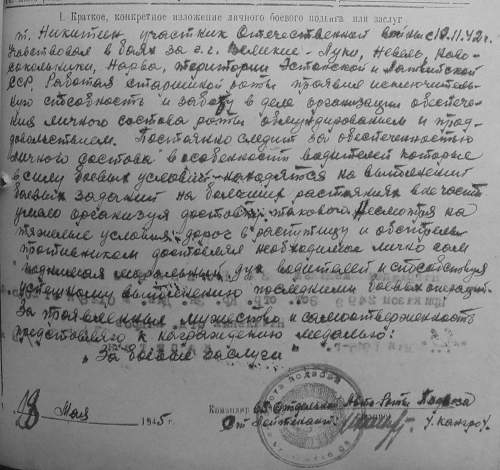 I. Краткое, конкретное изложение личного боевого подвига или заслуг
т. Никитин, участник Отечественной войны с 18.11.42 г.
Участвовал в боях за г.г. Великие-Луки, Невель, Ново-
сокольники, Нарва, территории Эстонской и Латвийской
ССР. Работая старшиной роты проявил исключитель-
ную способность и заботу в деле организации обеспече-
ния личного состава роты обмундированием и прод-
довольствием. Постоянно следит за обеспеченностью
личного состава в особенности водителей которые
в силу боевых условий находятся на выполнении
боевых заданий на больших расстояниях в не части
умело организуя доставку такового. Несмотря на
тяжелые условия дорог в распутицу и обстрелы
противником доставлял необходимое лично сам
поднимая моральный дух водителей и способствуя
успешному выполнению последними боевых операций.
За проявленные мужество и самоотверженность
представляю к награждению медалью:
"За боевые заслуги"
18 Мая 1945 г.
Командир Отдельной Авто-Роты Подвоза
Ст. Лейтенант: